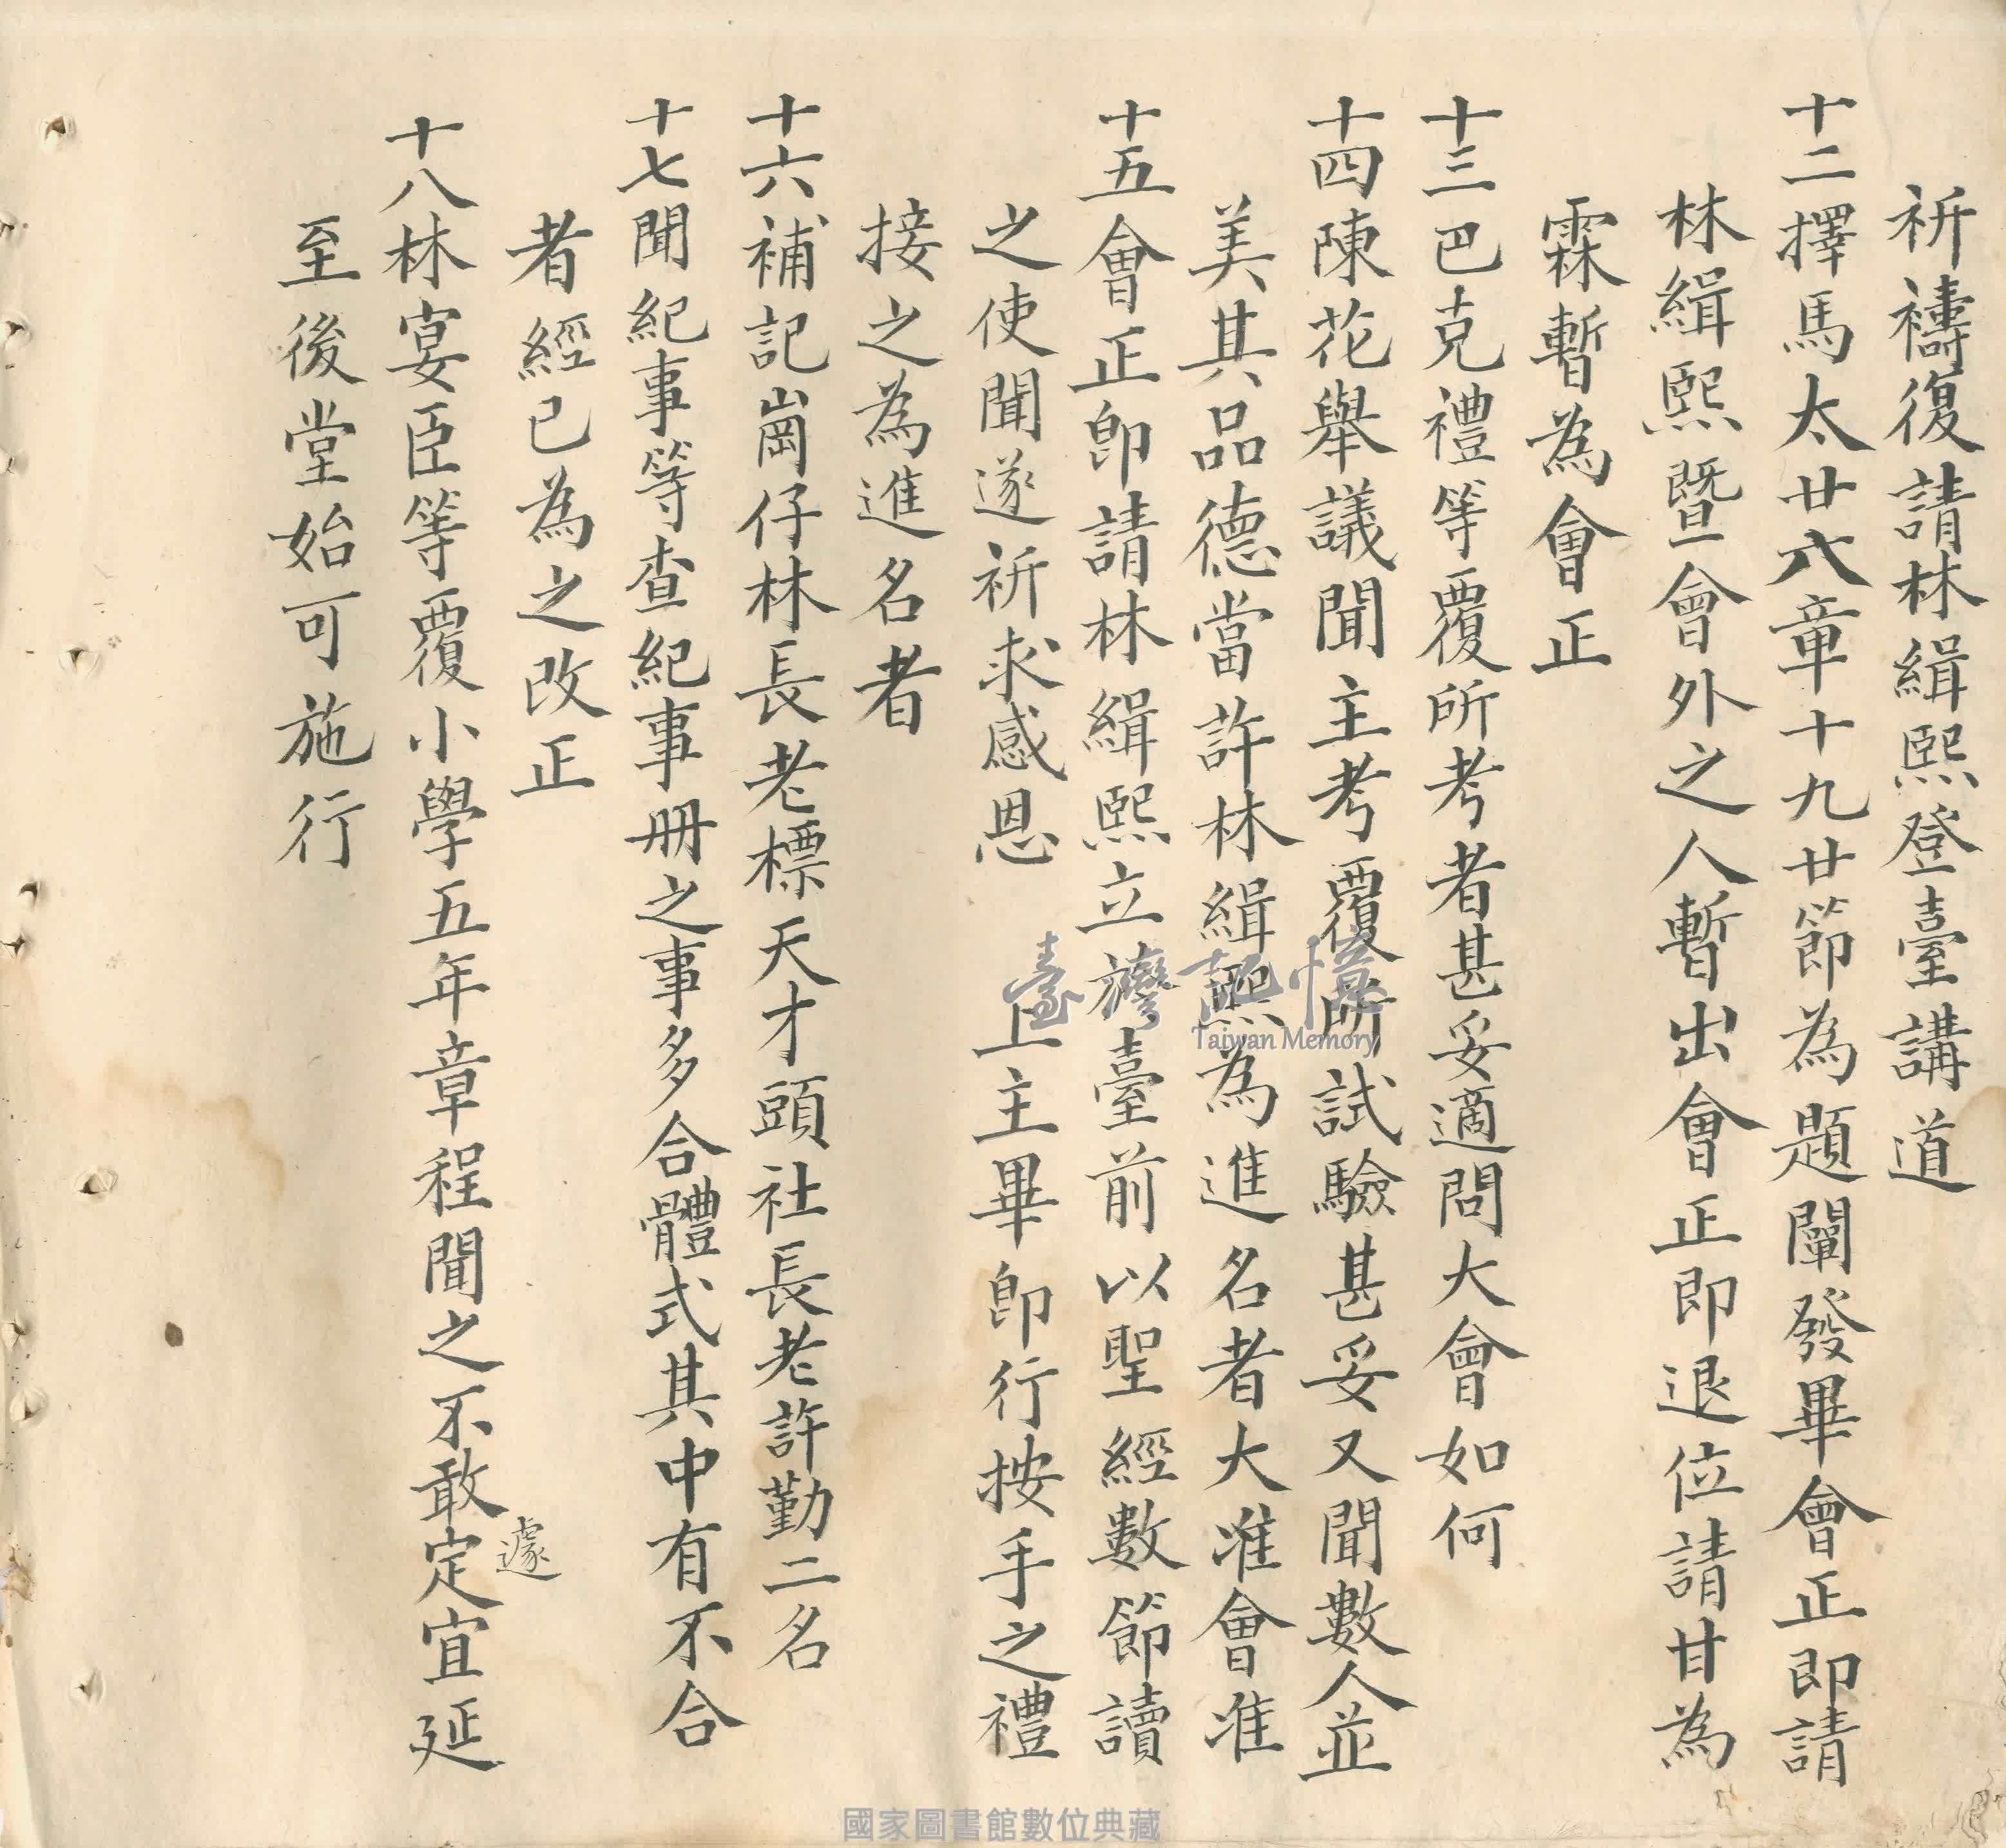 祈禱復請林緝熙登臺講道
十二擇馬太廿八章十九廿節為題闡發畢會正即請
林緝熙暨會外之人暫出會正即退位請甘為
霖暫為會正
十三巴克禮等覆所考者甚妥適問大會如何
十四陳花舉議聞主考覆所試驗甚妥又聞數人並
美其品德當許林緝熙為進名者大准會准
十五會正即請林緝熙立於臺前以聖經數節讀
之使聞遂祈求感恩 上主畢即行按手之禮
接之為進名者
十六補記崗仔林長老標天才頭社長老許勤二名
十七聞紀事等查紀事冊之事多合體式其中有不合
者經已為之改正
十八林宴臣等覆小學五年章程聞之不敢定宜延
遽
至後堂始可施行
臺灣記憶
Taiwan Memory
國家圖書館數位典藏